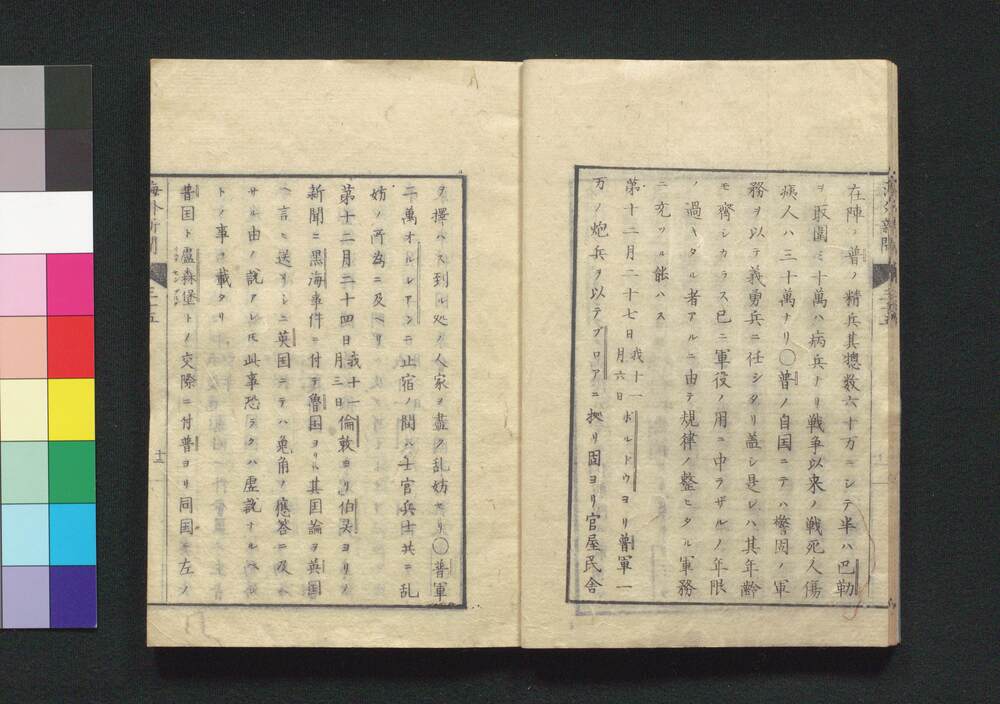 在陣ノ普ノ精兵其惣数六十万ニシテ半ハ巴勒
ヲ取圍ミ十萬ハ病兵ナリ戦争以来ノ戦死人傷
痍人ハ三十萬ナリ〇普ノ自国ニテハ警固ノ軍
務ヲ以テ義勇兵ニ任シタリ蓋シ是レハ其年齢
モ齊シカラス已ニ軍役ノ用ニ中ラザルノ年限
ノ過キタル者アルニ由テ規律ノ整ヒタル軍務
ニ充ツル能ハス
第十二月二十七日我十一月六日ボルドウヨリ普軍一
万ノ炮兵ヲ以テブロアニ拠リ固ヨリ官屋民舎
ヲ擇ハス到ル処ノ人家ヲ盡ク乱妨セリ〇普軍
二萬オルレアンニ止宿ノ間ハ士官兵士共ニ乱
妨ノ所為ニ及ヘリ
第十二月二十四日我十一月三日倫敦ヨリ伯灵ヨリノ
新聞ニ黒海事件ニ付テ魯国ヨリハ其国論ヲ英国
ヘ言ヒ送リシニ英国ニテハ兎角ノ應答ニ及ハ
サル由ノ説アレ圧此事恐ラクハ虚説ナルベシ
トノ事ヲ載タリ
普国ト盧森堡トノ交際ニ付普ヨリ同国ヘ左ノ
海外新聞
二十五
十二